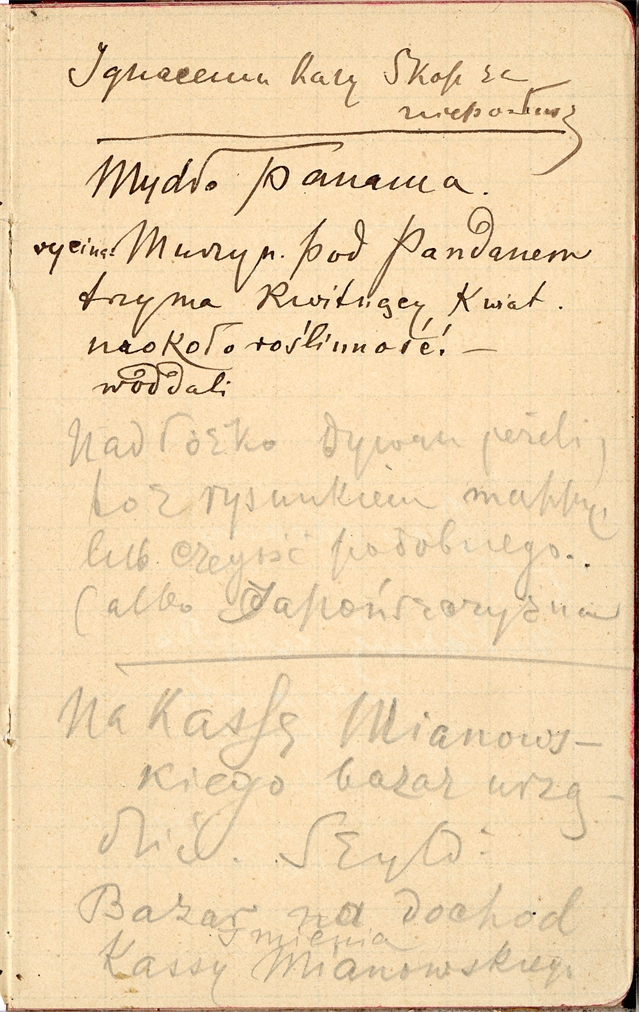 Ignacemu karę Skop za
nieposłusz
Mydło Panama.
wycina: Murzyn pod Pandanem
trzyma Kwitnący Kwiat.
naokoło roślinność. —
w oddali
Nad łóżko dywan perski,
lub czegość podobnego.
(albo Japońszczyzna
Na Kassę Mianows-
kiego bazar urzą-
dzić. Szyld:
Bazar na dochód
Imienia
Kassy Mianowskieg